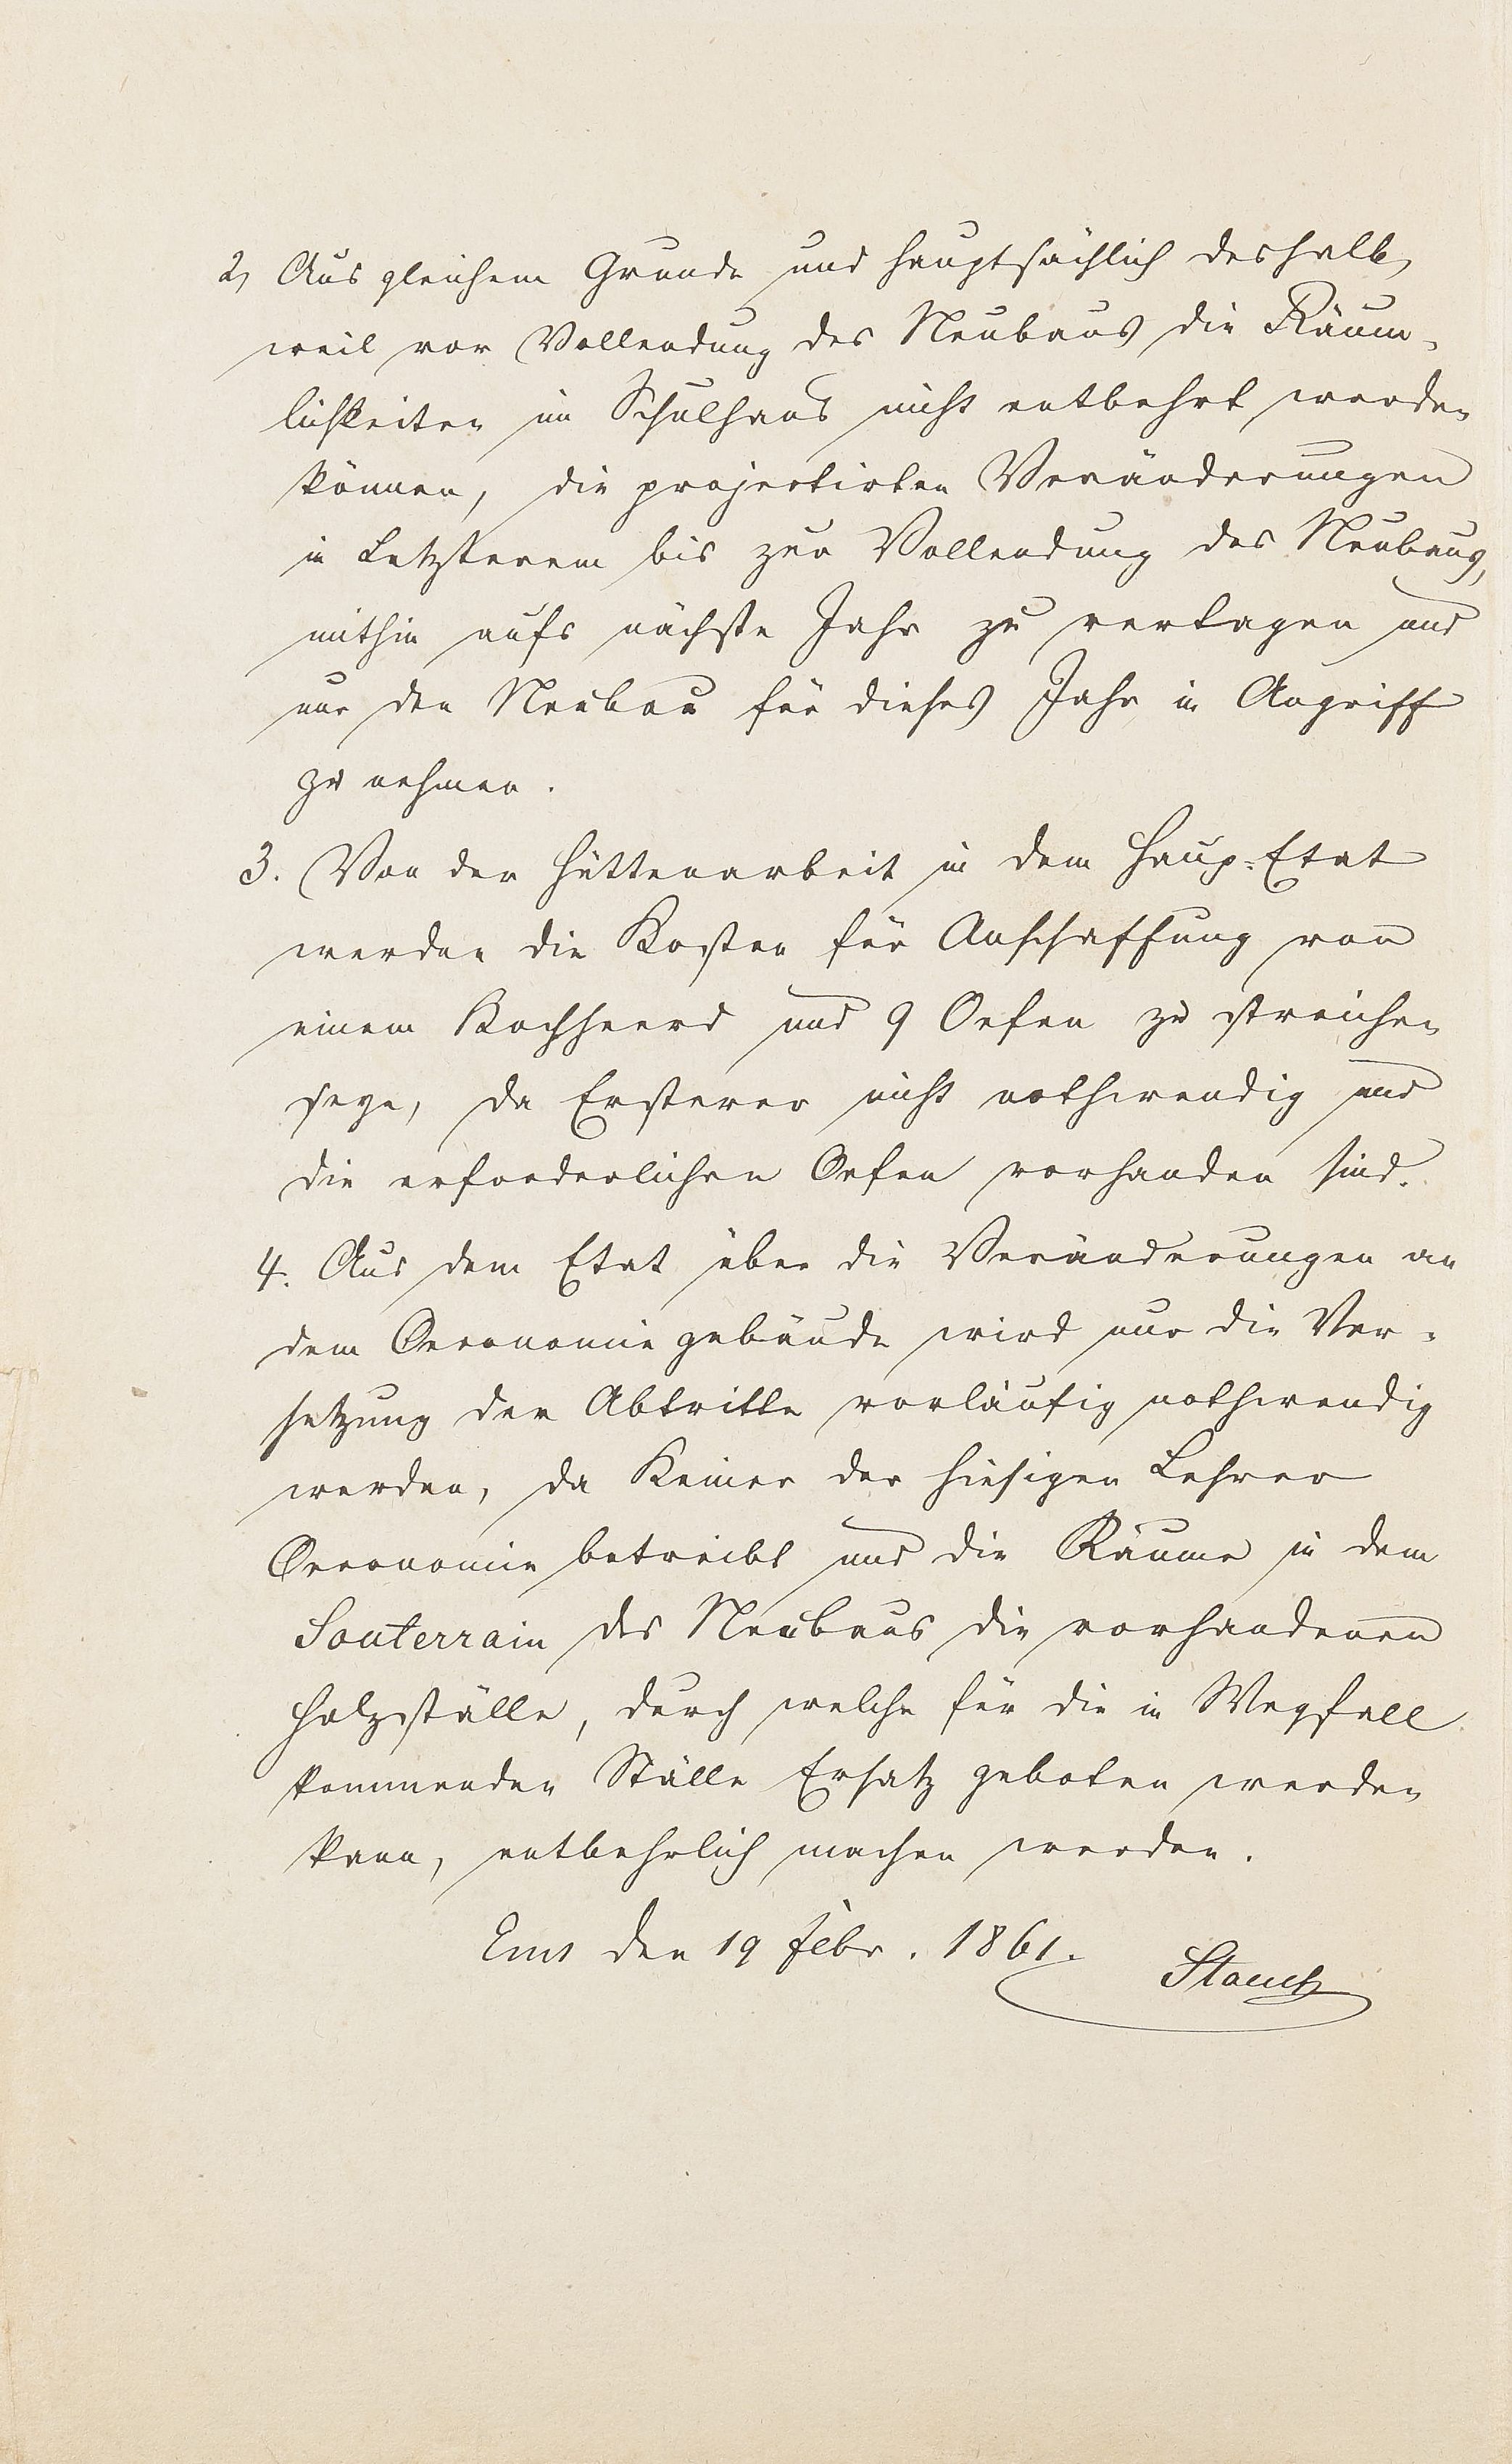 2, Aus gleichem Grunde und hauptsächlich deshalb,
weil vor Vollendung des Neubaus die Räum-
lichkeiten im Schulhaus nicht entbehrt werden
können, die projectirten Veränderungen
in Letzterem bis zur Vollendung des Neubaus,
mithin aufs nächste Jahr zu vertagen und
nur den Neubau für dieses Jahr in Angriff
zu nehmen.
3. Von der Hüttenarbeit in dem Haup-Etat
werden die Kosten für Anschaffung von
einem Kochheerd und 9 Oefen zu streichen
seye, da Ersterer nicht nothwendig und
die erforderlichen Oefen vorhanden sind.
4. Aus dem Etat über die Veränderungen an
dem Oeconomiegebäude wird nur die Ver-
setzung der Abtritte vorläufig nothwendig
werden, da Keiner der hiesigen Lehrer
Oeconomie betreibt und die Räume in dem
Souterrain des Neubaus die vorhandenen
Holzställe, durch welche für die in Wegfall
kommenden Ställe Ersatz geboten werden
kann, entbehrlich machen werden.
Ems den 19 Febr. 1861.